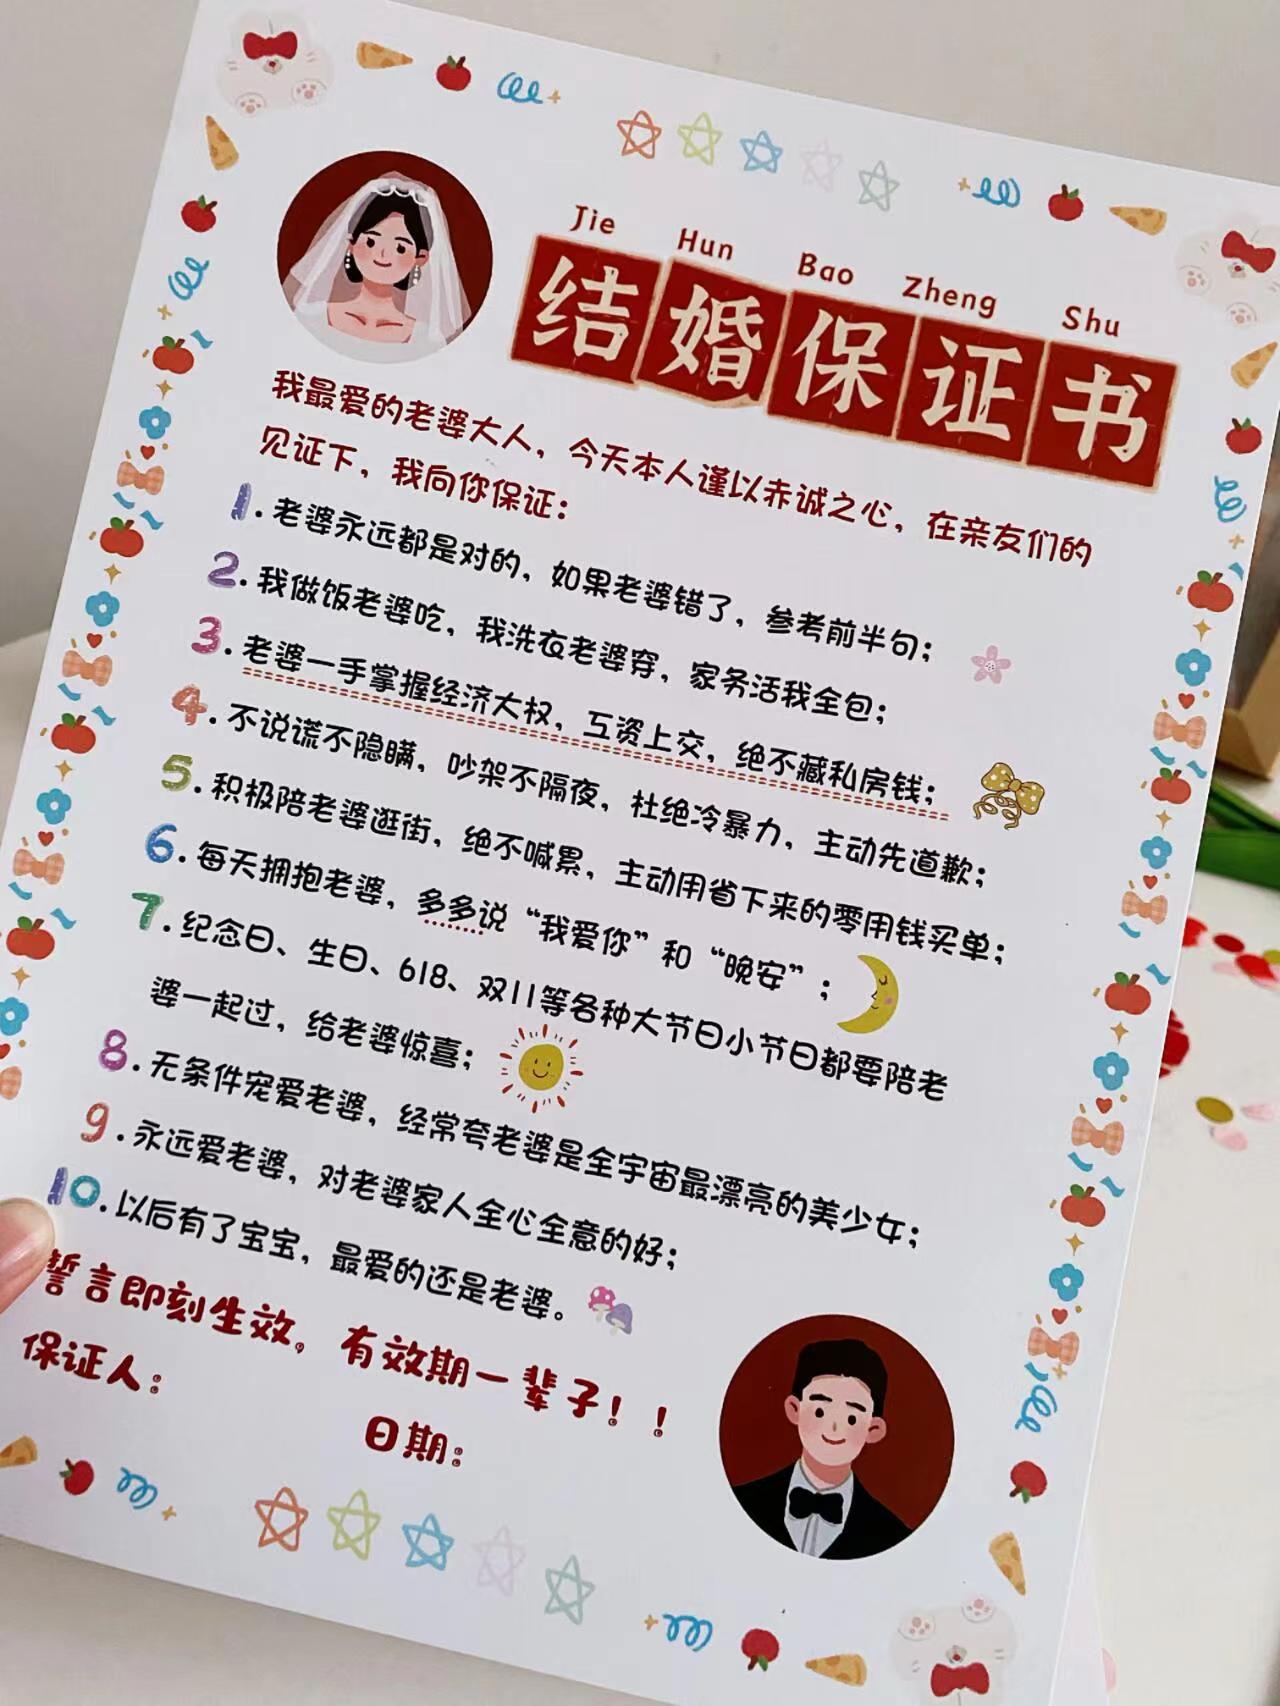 Jie Hun Bao Zheng Shu
结婚保证书
我最爱的老婆大人，今天本人谨以赤诚之心，在亲友们的
见证下，我向你保证：
1.老婆永远都是对的，如果老婆错了，参考前半句；
2.我做饭老婆吃，我洗衣老婆穿，家务活我全包；
3.老婆一手掌握经济大权，互资上交，绝不藏私房钱；
4.不说谎不隐瞒，吵架不隔夜，杜绝冷暴力，主动先道歉；
5.积极陪老婆逛街，绝不喊累，主动用省下来的零用钱买单；
6.每天拥抱老婆，多多说“我爱你”和“晚安”；
7.纪念日、生日、618、双11等各种大节日小节日都要陪老
婆一起过，给老婆惊喜；
8.无条件宠爱老婆，经常夸老婆是全宇宙最漂亮的美少女；
9.永远爱老婆，对老婆家人全心全意的好；
10.以后有了宝宝，最爱的还是老婆。
誓言即刻生效，有效期一辈子！！
保证人：
日期：